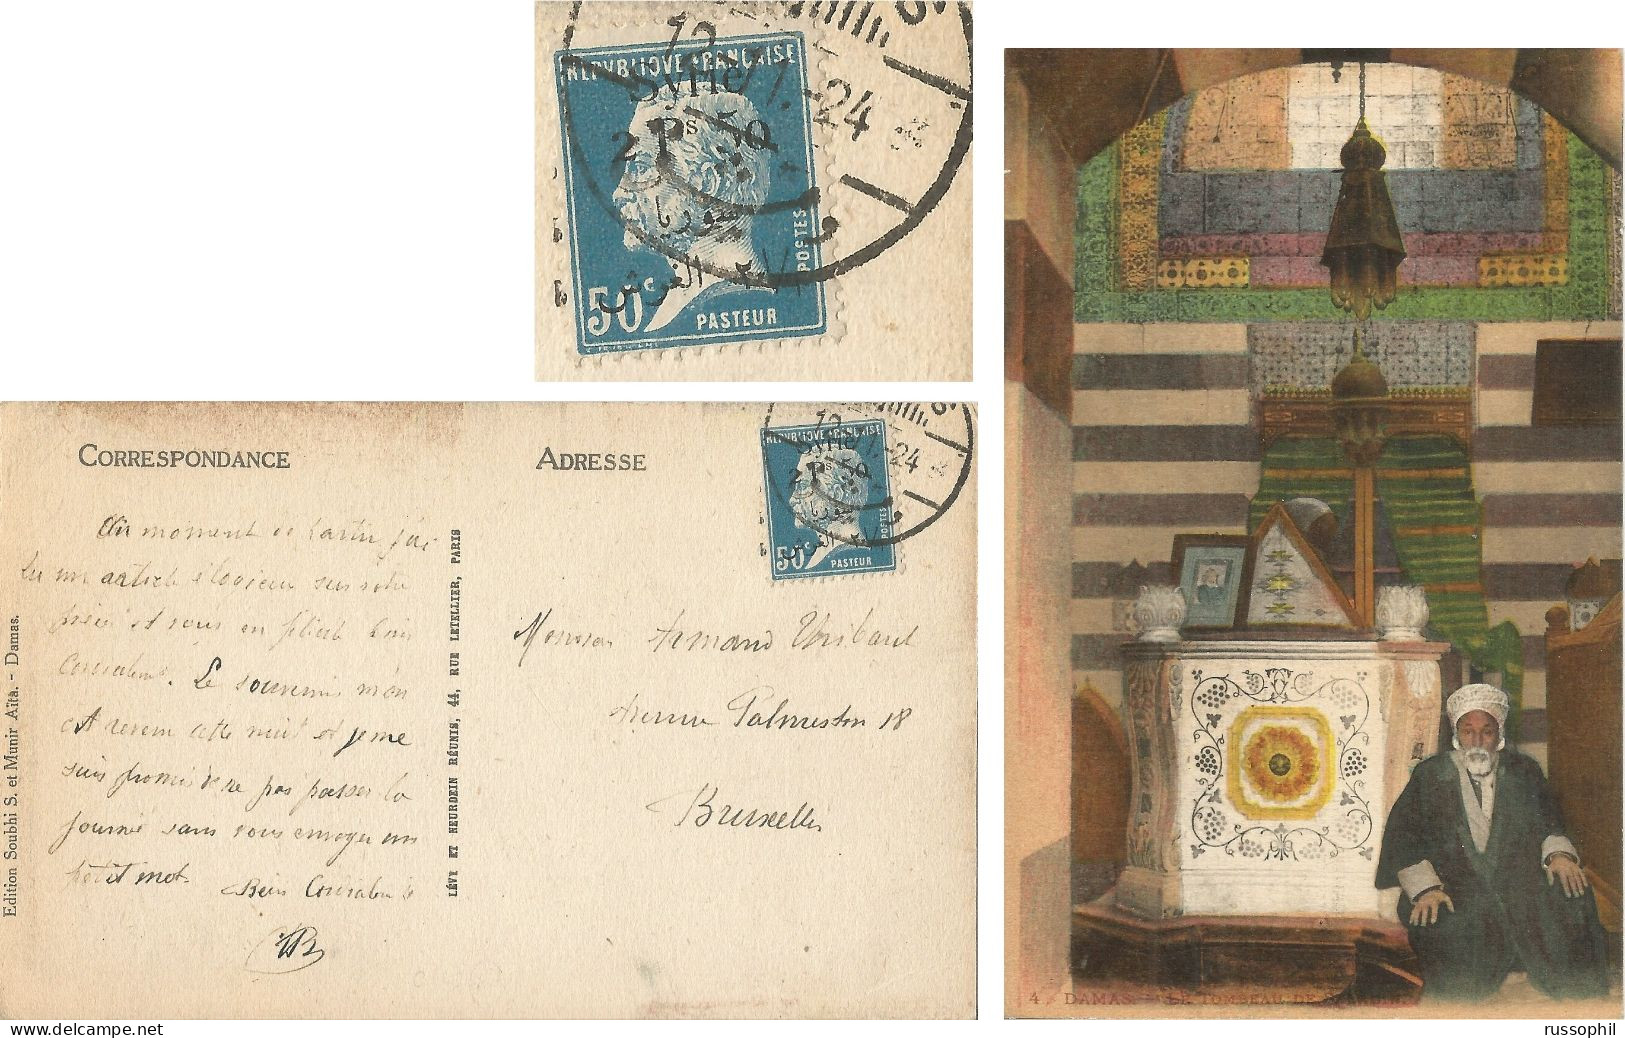 REPVBLIQVE FRANÇAISE
Syrie
2 Ps 50
سوريا
الغروش
POSTES
50c
PASTEUR
12 7.-24
CORRESPONDANCE
ADRESSE
REPVBLIQVE FRANÇAISE
Syrie
2 Ps 50
سوريا
الغروش
POSTES
50c
PASTEUR
12 7.-24
Au moment de partir j'ai
lu un article élogieux sur votre
et vous en félicite bien
cordialement. Le souvenir m'en
est revenu cette nuit et je me
suis promis de ne pas passer la
journée sans vous envoyer un
petit mot.
Bien Cordialement
Monsieur Armand Thibaut
Avenue Palmerston 18
Bruxelles
Edition Soubhi S. et Munir Aïta. - Damas.
LÉVY ET NEURDEIN RÉUNIS, 44, RUE LETELLIER, PARIS
4. DAMAS. - LE TOMBEAU DE SALADIN
russophil